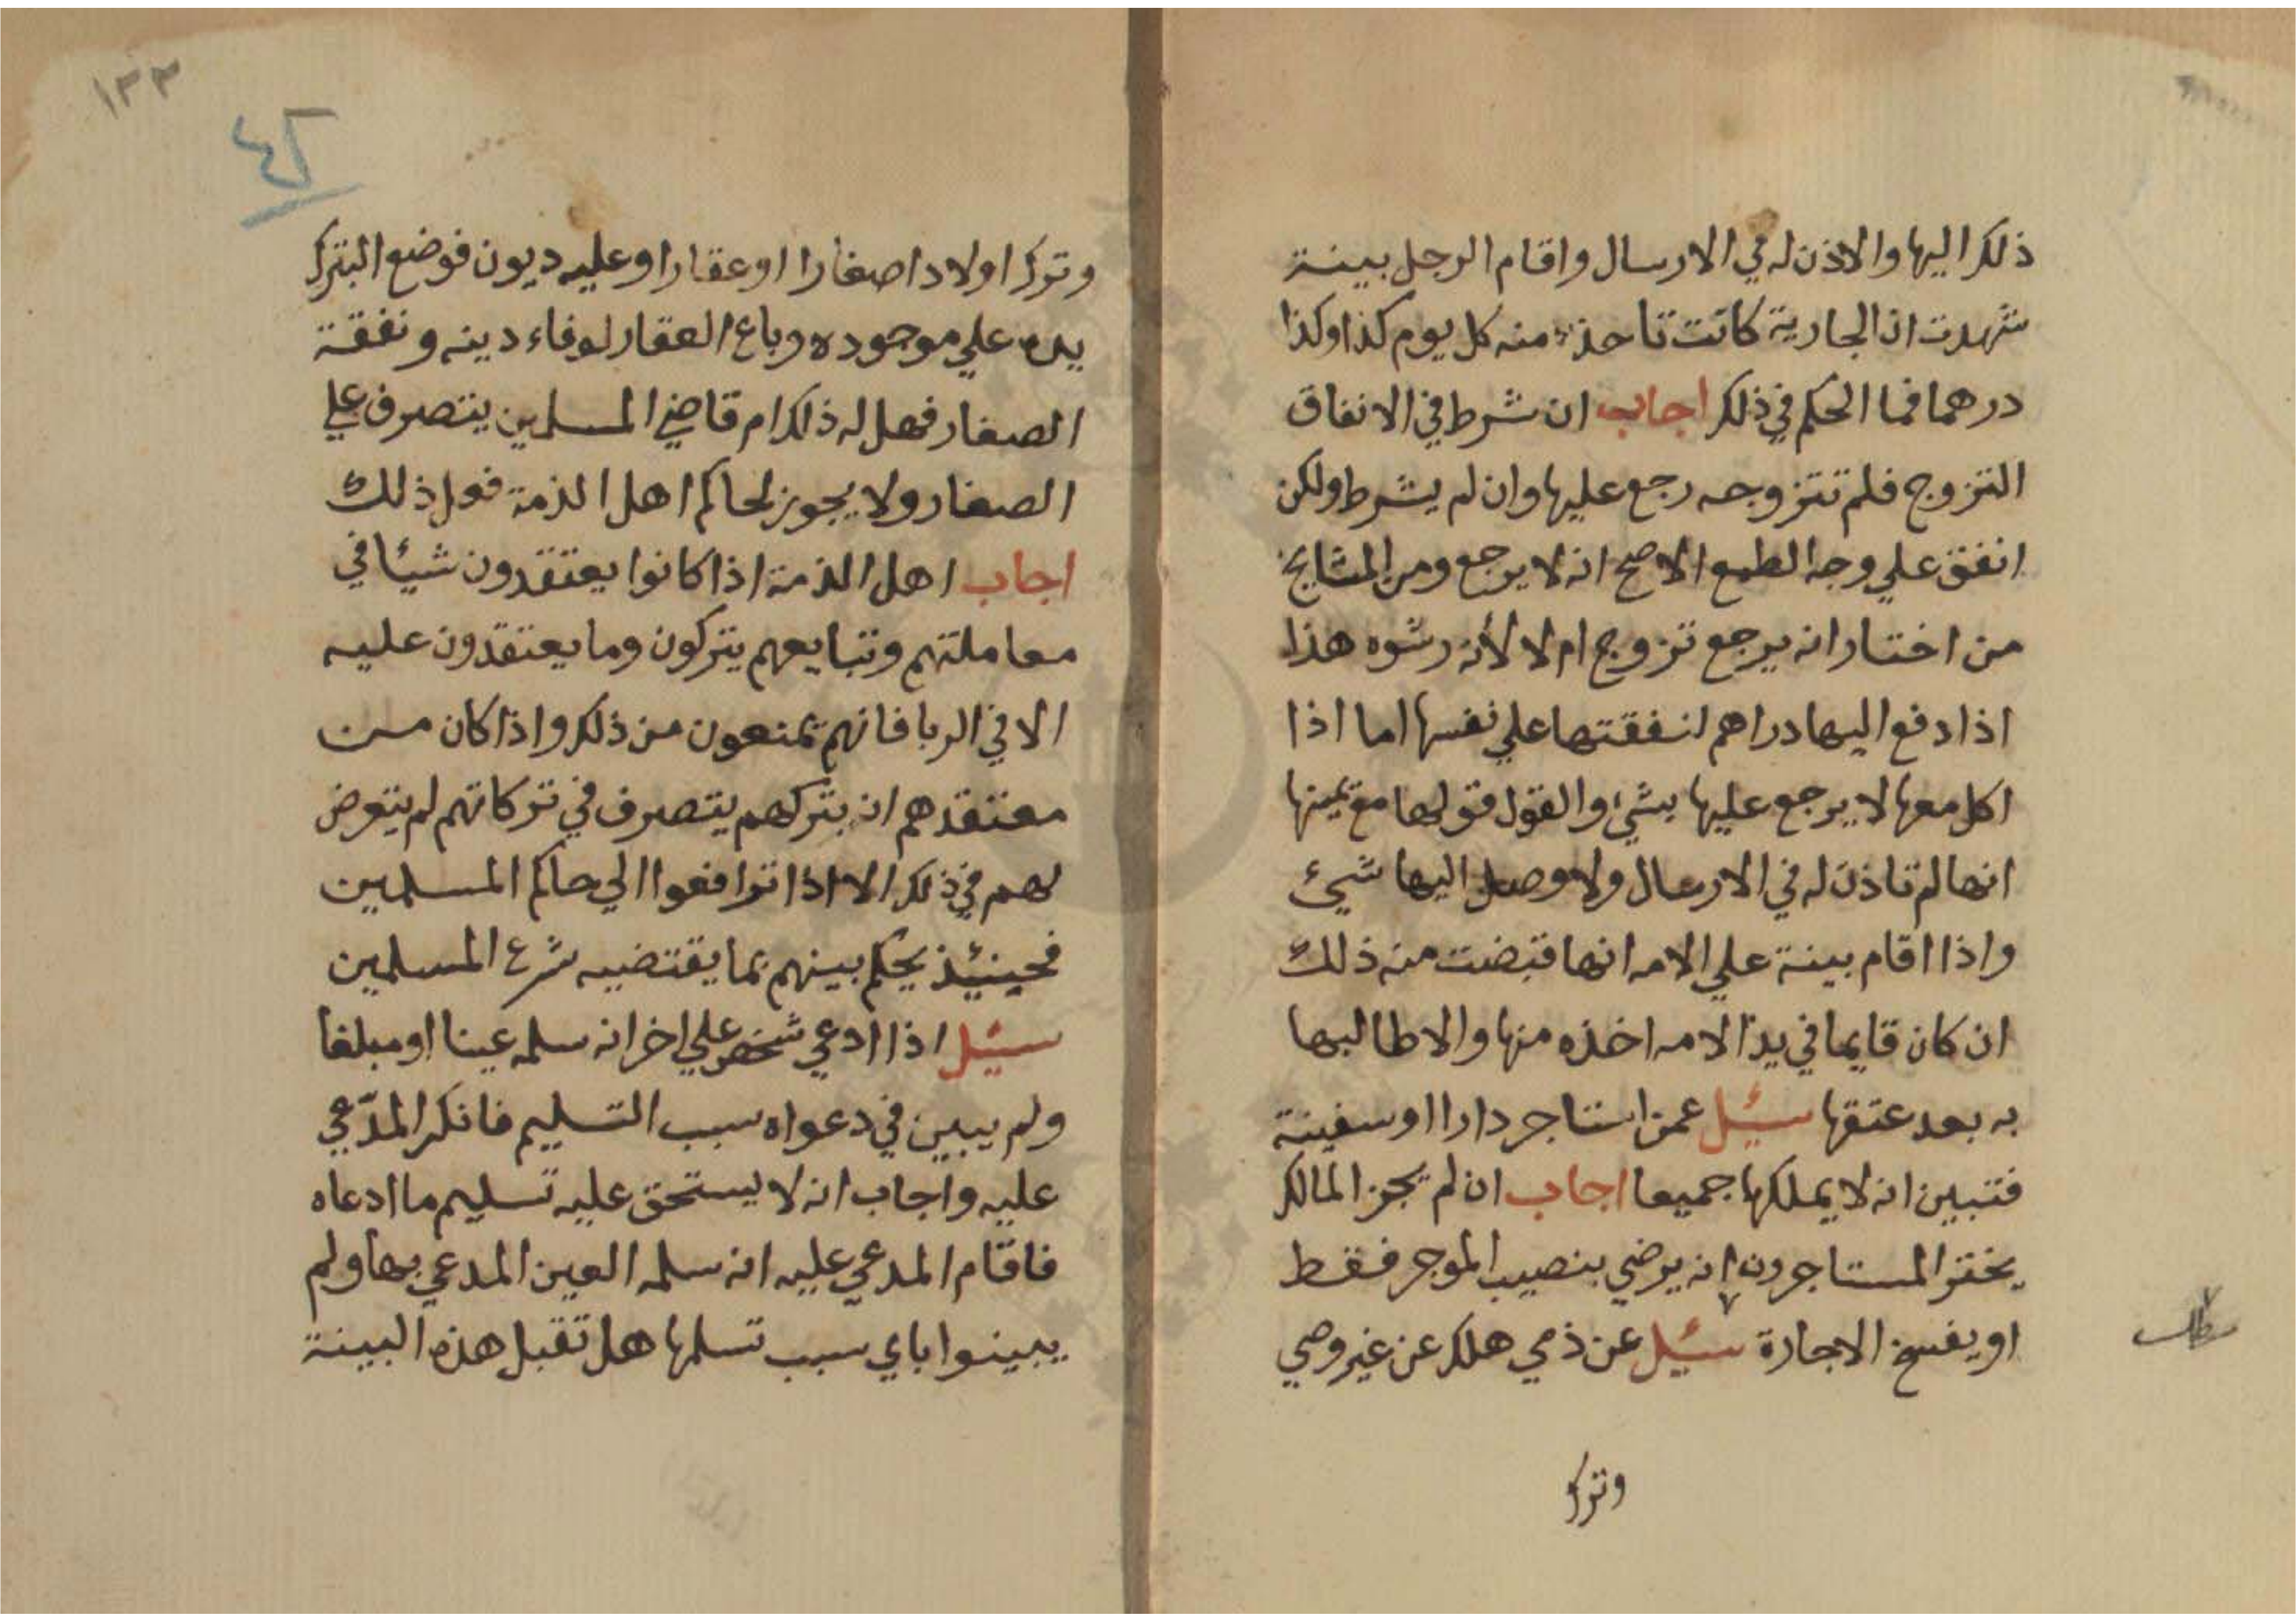 ذلك اليها والاذن له في الارسال واقام الرجل بينة
شهدت ان الجارية كانت تاخذ منه كل يوم كذا وكذا
درهما فما الحكم في ذلك اجاب ان شرط في الانفاق
التزوج فلم تتزوجه رجع عليها وان لم يشرط ولكن
انفق علي وجه الطمع الاصح انه لا يرجع ومن المشايخ
من اختار انه يرجع تزوج ام لا لأنه رشوه هذا
اذا دفع اليها دراهم لنفقتها علي نفسها اما اذا
اكل معها لا يرجع عليها بشيء والقول قولها مع يمينها
انها لم تاذن له في الارسال ولا وصل اليها شيئ
واذا اقام بينة علي الامه انها قبضت منه ذلك
ان كان قايما في يد الامه اخذه منها والا طالبها
به بعد عتقها سئيل عمن استاجر دارا او سفينة
فتبين انه لا يملكها جميعا اجاب ان لم يجز المالك
يختر المستاجرون انه يرضي بنصيب الموجر فقط
او يفسخ الاجارة سئيل عن ذمي هلك عن غير وصي
مطلب
وترك
١٣٣
٤٢
وترك اولادا صغارا او عقارا وعليه ديون فوضع البترك
يده علي موجوده وباع العقار لوفاء دينه ونفقة
الصغار فهل له ذلك ام قاضي المسلمين يتصرف علي
الصغار ولا يجوز لحاكم اهل الذمة فعل ذلك
اجاب اهل الذمة اذا كانوا يعتقدون شيئا في
معاملتهم وتبايعهم يتركون وما يعتقدون عليه
الا في الربا فانهم يمنعون من ذلك واذا كان من
معتقدهم ان بتركهم يتصرف في تركاتهم لم يتعرض
لهم في ذلك الا اذا ترافعوا الي حاكم المسلمين
فحينئذ يحكم بينهم بما يقتضيه شرع المسلمين
سئيل اذا ادعي شخص علي اخر انه سلمه عينا او مبلغا
ولم يبين في دعواه سبب التسليم فانكر المدّعي
عليه واجاب انه لا يستحق عليه تسليم ما ادعاه
فاقام المدعي عليه انه سلمه العين المدعي بها ولم
يبينوا باي سبب تسلمها هل تقبل هذه البينة